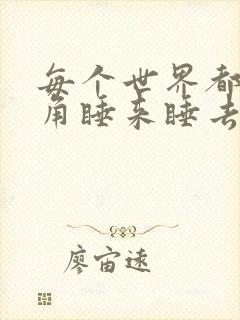 每个世界都
角睡来睡去
廖宙远